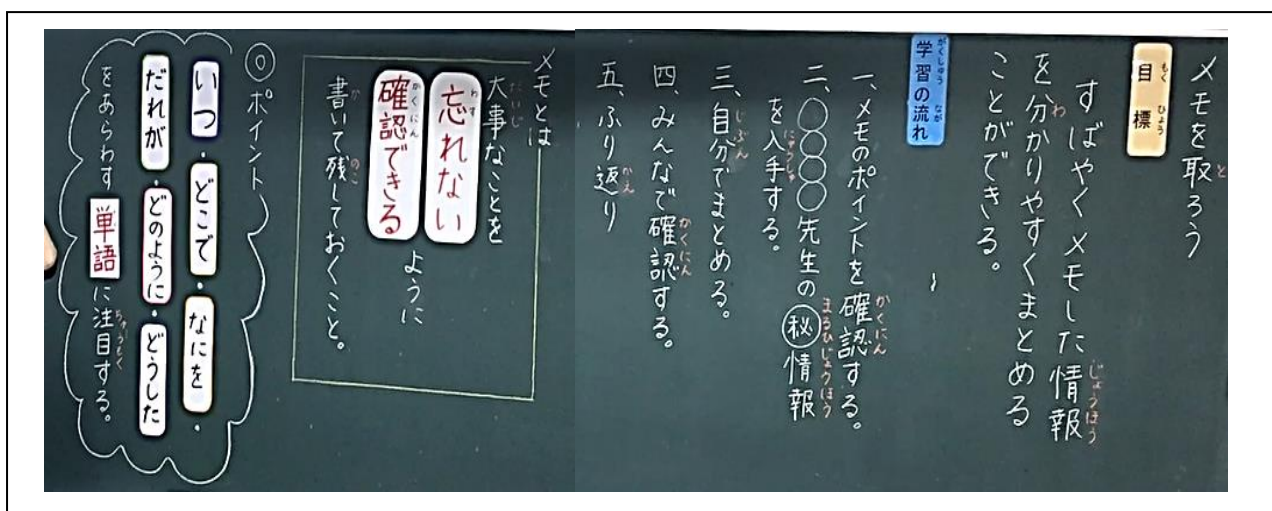 メモを取ろう
目標
すばやくメモした情報
を分かりやすくまとめる
ことができる。
学習の流れ
一、メモのポイントを確認する。
二、○○○○先生の㊙情報
を入手する。
三、自分でまとめる。
四、みんなで確認する。
五、ふり返り
メモとは
大事なことを
忘れない
確認できる
ように
書いて残しておくこと。
◎ポイント
いつ・どこで・なにを・
だれが・どのように・どうした
をあらわす単語に注目する。